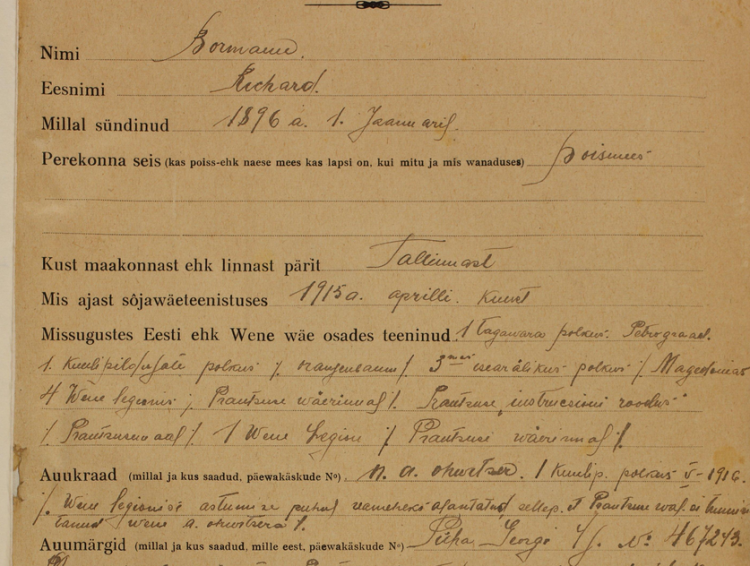 Nimi Bormann.
Eesnimi Richard.
Millal sündinud 1896 a. 1. Jaanuaril.
Perekonna seis (kas poiss-ehk naese mees kas lapsi on, kui mitu ja mis wanaduses) poismees
Kust maakonnast ehk linnast pärit Tallinnast
Mis ajast sõjawäeteenistuses 1915 a. aprilli. kuust
Missugustes Eesti ehk Wene wäe osades teeninud 1 tagawara polkus. Petrograad.
1. Kuulipildujate polkus /. oranjenbaum /. 3 iseäralikus polkus /. Magedonias
4 Wene legionis /. Prantsuse wäerinnal /. Prantsuse instruksioni roodus
/. Prantsusmaal /. 1 Wene Legion /. Prantsuse wäerinnal /.
Auukraad (millal ja kus saadud, päewakäskude №) n. a. ohwitser. 1 Kuulip. polkus V - 1916.
/. Wene legionisse astumise puhul reameheks alantatud sellep. et Prantsuse
wene a. ohwitsera /.
Auumärgid (millal ja kus saadud, mille eest, päewakäskude №) Püha Georgi 4 j. № 467243.